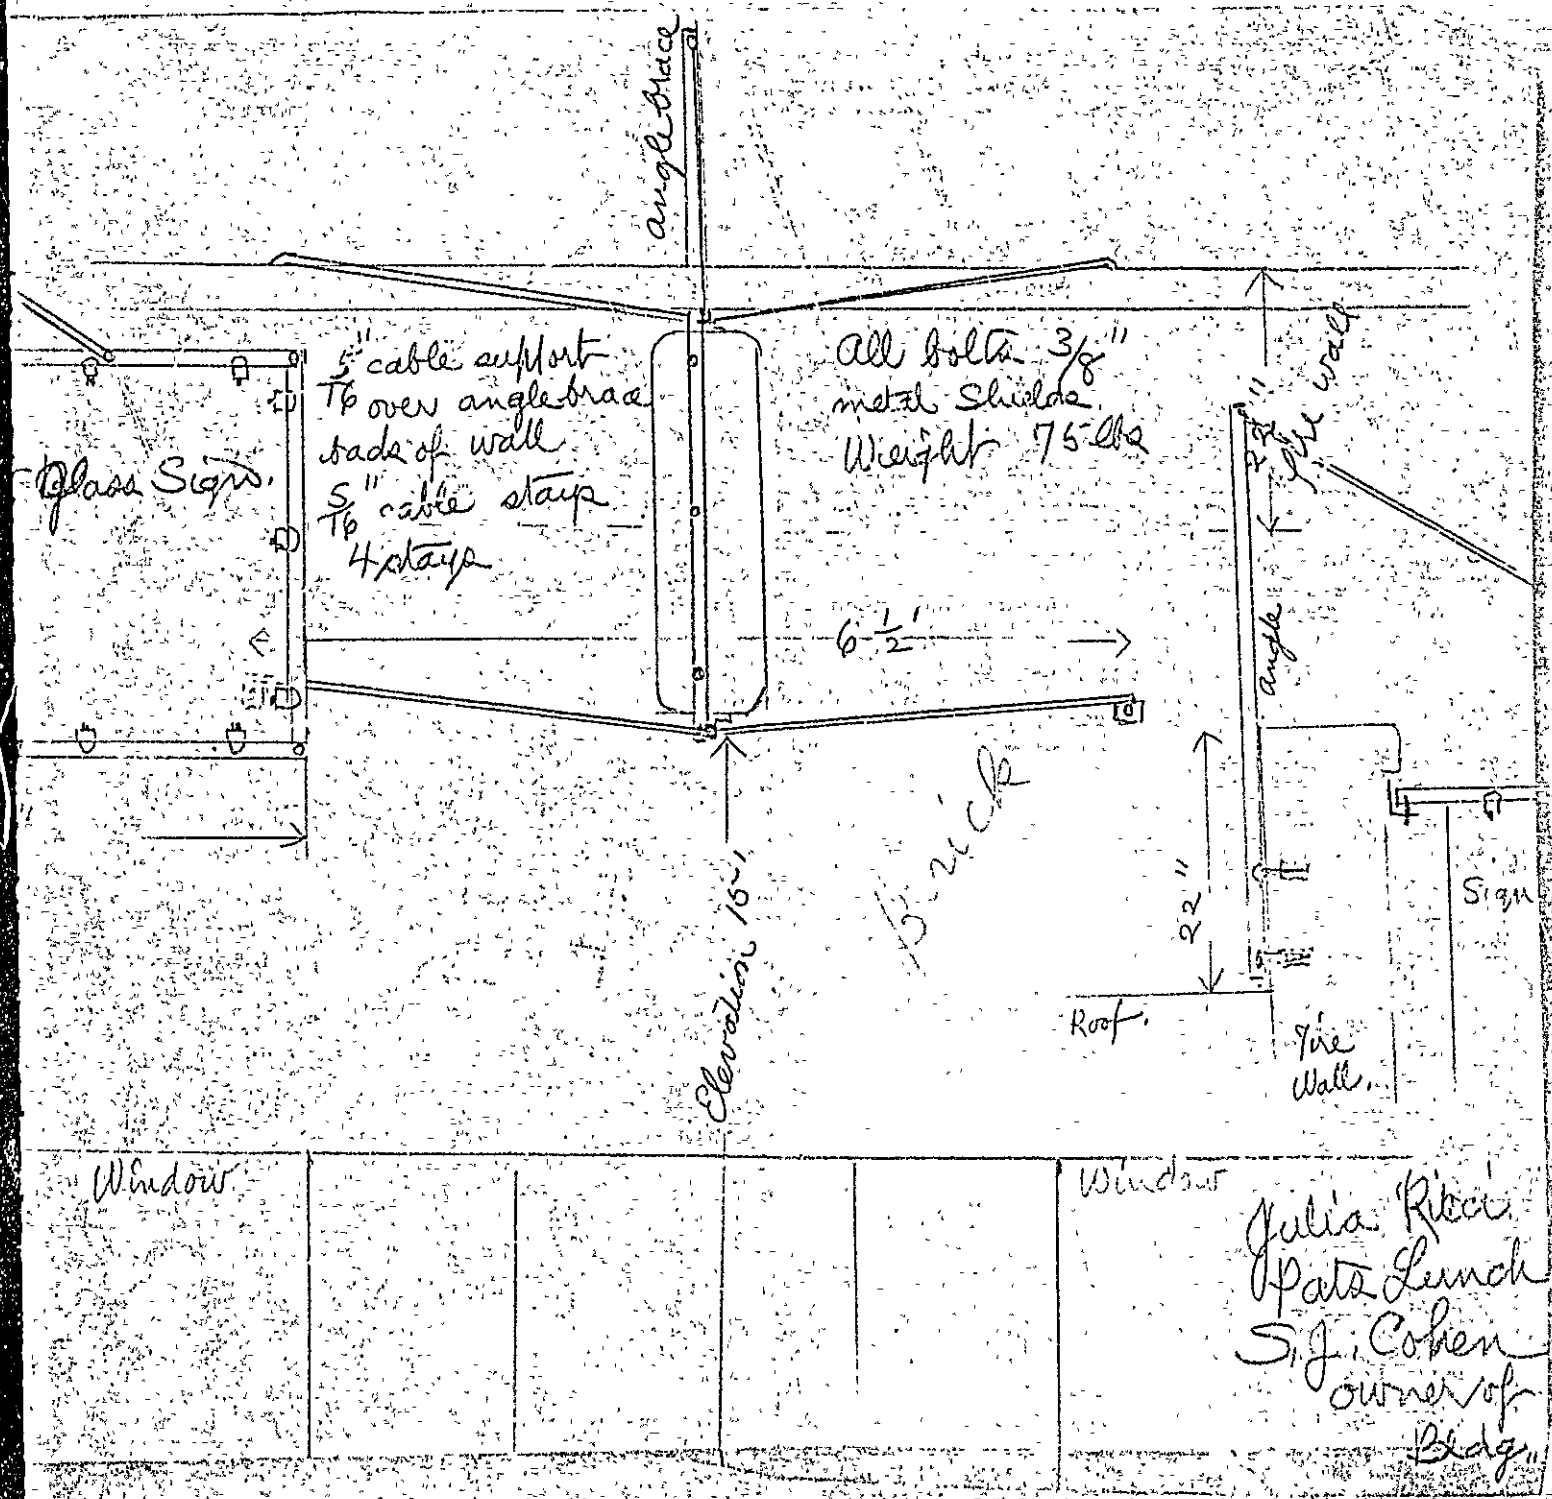 angle brace
5/16" cable support
over angle brace
of wall
5/16" cable stays
4 stays
Glass Sign.
All bolts 3/8"
metal Shields
Weight 75 lbs
22"
fire wall
angle
6-1/2'
22"
Sign
Elevation 15'
Roof.
Fire
Wall.
Window
Window
Julia Ricci
Pats Lunch
S. J. Cohen
owner of
Bldg.